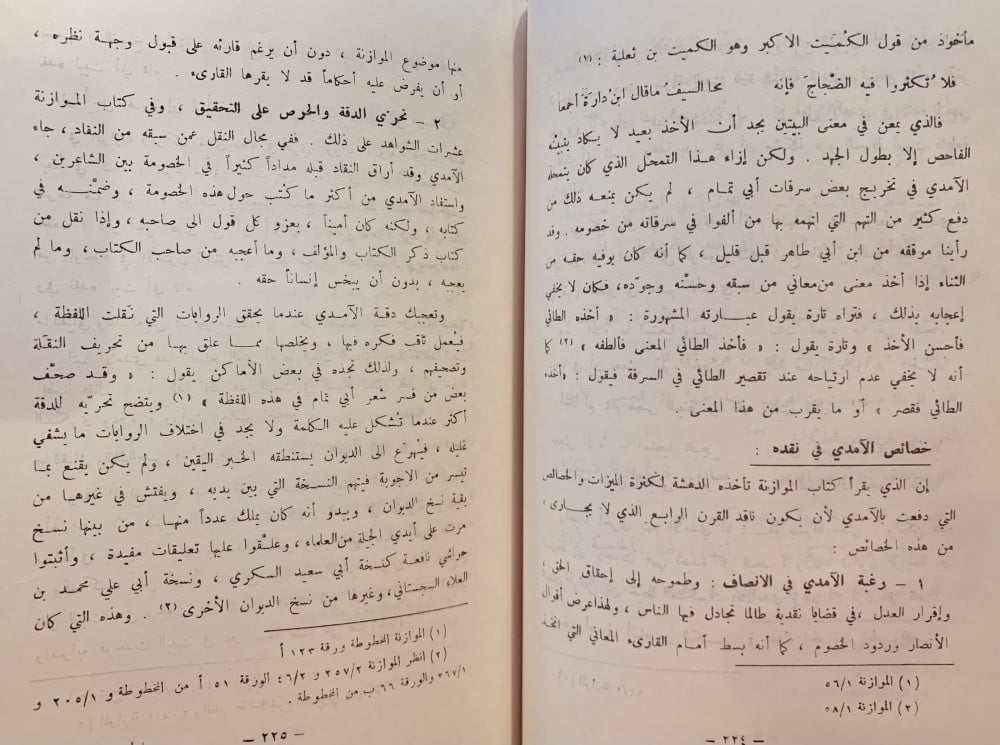 مأخوذ من قول الكُمَيت الاكبر وهو الكميت بن ثعلبة : (١)
فلا تُكثروا فيه الضَّجاجَ فإنه محا السيفُ ماقال ابنُ دارةَ أجمعا
فالذي يمعن في معنى البيتين يجد أن الأخذ بعيد لا يكاد يثبته
الفاحص إلا بطول الجهد . ولكن إزاء هذا التمحّل الذي كان يتمحله
الآمدي في تخريج بعض سرقات أبي تمام ، لم يكن يمنعه ذلك من
دفع كثير من التهم التي اتهمه بها من ألفوا في سرقاته من خصومه . وقد
رأينا موقفه من ابن أبي طاهر قبل قليل ، كما أنه كان يوفيه حقه من
الثناء إذا أخذ معنى من معاني من سبقه وحسّنه وجوّده، فكان لا يخفي
إعجابه بذلك ، فتراه تارة يقول عبارته المشهورة : « أخذه الطائي
فأحسن الأخذ » وتارة يقول : « فأخذ الطائي المعنى فألطفه » (٢) كما
أنه لا يخفي عدم ارتياحه عند تقصير الطائي في السرقة فيقول : «أخذه
الطائي فقصر » أو ما يقرب من هذا المعنى .
خصائص الآمدي في نقده :
إن الذي يقرأ كتاب الموازنة تأخذه الدهشة لكثرة الميزات والخصائص
التي دفعت بالآمدي لأن يكون ناقد القرن الرابع الذي لا يجارى ،
من هذه الخصائص :
١ – رغبة الآمدي في الانصاف : وطموحه إلى إحقاق الحق ،
وإقرار العدل ، في قضايا نقدية طالما تجادل فيها الناس ، ولهذا عرض أقوال
الأنصار وردود الخصوم ، كما أنه بسط أمام القارىء المعاني التي اتخذ
(١) الموازنة ٥٦/١
(٢) الموازنة ٥٨/١
– ٢٢٤ –
منها موضوع الموازنة ، دون أن يرغم قارئه على قبول وجهة نظره ،
أو أن يفرض عليه أحكاماً قد لا يقرها القارىء .
٢ – تحرّي الدقة والحرص على التحقيق ، وفي كتاب الموازنة
عشرات الشواهد على ذلك . ففي مجال النقل عمن سبقه من النقاد ، جاء
الآمدي وقد أراق النقاد قبله مداداً كثيراً في الخصومة بين الشاعرين ،
واستفاد الآمدي من أكثر ما كُتب حول هذه الخصومة ، وضمّنه في
كتابه ، ولكنه كان أميناً ، يعزو كل قول الى صاحبه ، وإذا نقل من
كتاب ذكر الكتاب والمؤلف ، وما أعجبه من صاحب الكتاب، وما لم
يعجبه ، بدون أن يبخس إنساناً حقه .
وتعجبك دقة الآمدي عندما يحقق الروايات التي نَقلت اللفظة ،
فيُعمل ثاقب فكره فيها ، ويخلصها مما علق بها من تحريف النقَلة
وتصحيفهم ، ولذلك تجده في بعض الأماكن يقول : « وقد صحّف
بعض من فسر شعر أبي تمام في هذه اللفظة » (١) ويتضح تحرّيه للدقة
أكثر عندما تُشكل عليه الكلمة ولا يجد في اختلاف الروايات ما يشفي
غليله ، فيُهرَع الى الديوان يستنطقه الخبر اليقين ، ولم يكن يقنع بما
تيسر من الاجوبة فيتهم النسخة التي بين يديه ، ويفتش في غيرها من
بقية نسخ الديوان ، ويبدو أنه كان يملك عدداً منها ، من بينها نسخ
مرت على أيدي الجلة من العلماء، وعلّقوا عليها تعليقات مفيدة ، وأثبتوا
حواشي نافعة كنسخة أبي سعيد السكري ، ونسخة أبي علي محمد بن
العلاء السجستاني، وغيرها من نسخ الديوان الأخرى (٢) . وهذه التي كان
(١) الموازنة المخطوطة ورقة ١٢٣ أ
(٢) انظر الموازنة ٢٥٧/٢ و ٤٦/٢ الورقة ٥١ أ من المخطوطة و ٢٠٥/١ و
٢٦٧/١ والورقة ٦٦ ب من المخطوطة .
– ٢٢٥ –